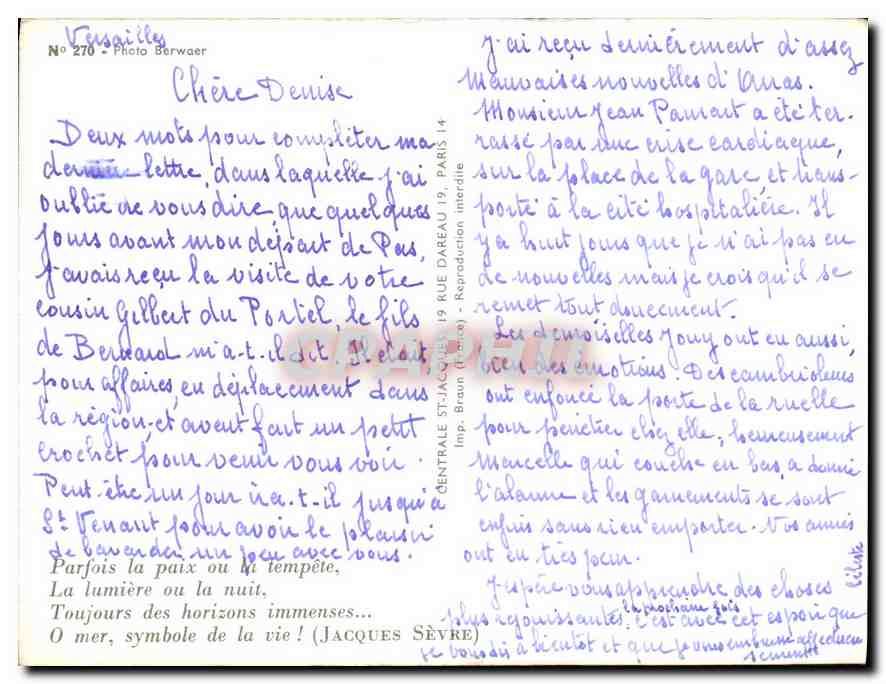 Versailles
N° 270 - Photo Berwaer
Chère Denise
Deux mots pour compléter ma
dernière lettre, dans laquelle j'ai
oublié de vous dire, que quelques
jours avant mon départ de Pas,
j'avais reçu la visite de votre
cousin Gilbert du Portel, le fils
de Bernard m'a-t-il dit. Il était,
pour affaires, en déplacement dans
la région, et avait fait un petit
crochet, pour venir vous voir.
Peut-être un jour ira-t-il jusqu'à
St Venant pour avoir le plaisir
de bavarder un peu avec vous.
Parfois la paix ou la tempête,
La lumière ou la nuit,
Toujours des horizons immenses...
O mer, symbole de la vie ! (JACQUES SÈVRE)
CENTRALE ST-JACQUES 19 RUE DAREAU 19, PARIS 14
Imp. Braun (France) - Reproduction interdite
CPAPHIL
J'ai reçu dernièrement d'assez
mauvaises nouvelles d'Arras.
Monsieur Jean Paurart a été ter-
rassé par une crise cardiaque,
sur la place de la gare et trans-
porté à la cité hospitalière. Il
y a huit jours que je n'ai pas eu
de nouvelles mais je crois qu'il se
remet tout doucement.
Les demoiselles Jouy ont eu aussi,
bien des émotions. Des cambrioleurs
ont enfoncé la porte de la ruelle
pour pénétrer chez elle, heureusement
Marcelle qui couche en bas, a donné
l'alarme et les garnements se sont
enfuis sans rien emporter. Vos amies
ont eu très peur.
J'espère vous apprendre des choses
plus réjouissantes, la prochaine fois
c'est avec cet espoir que
je vous dis à bientôt et que je vous embrasse affectueu
sement
Céleste